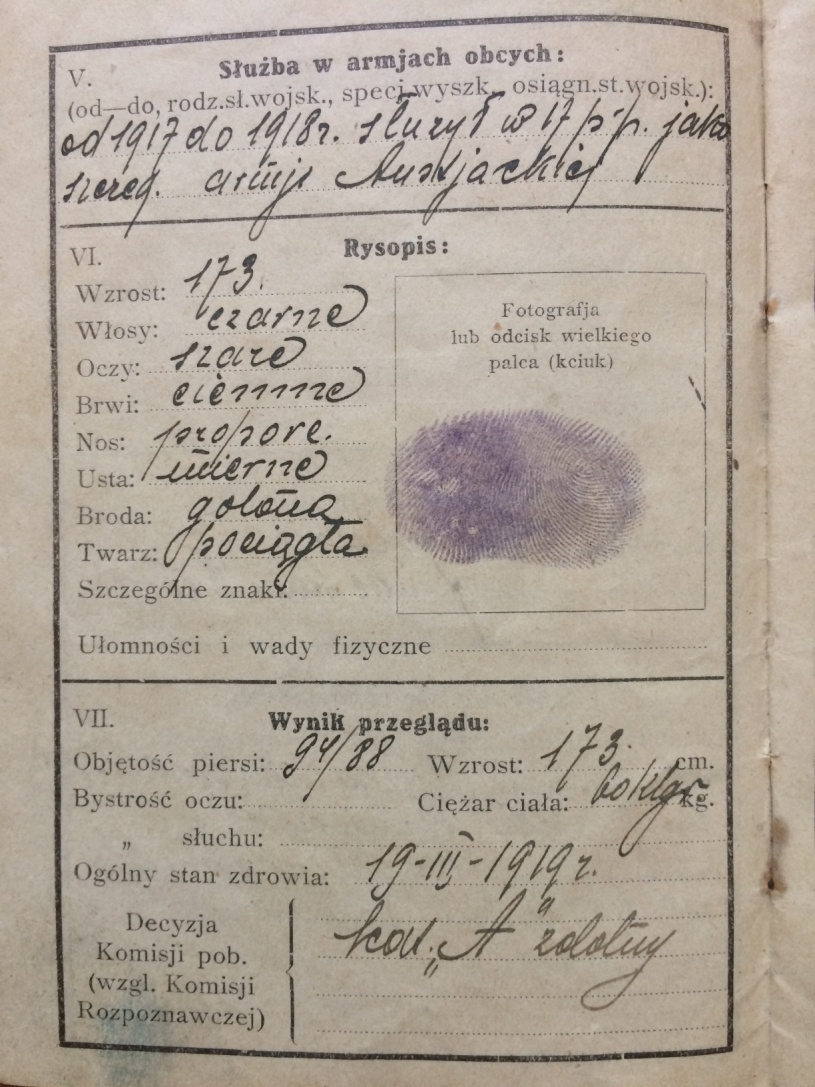 V. Służba w armjach obcych:
(od—do, rodz.sł.wojsk., specj.wyszk., osiągn.st.wojsk.):
od 1917 do 1918 r. służył w 17 p.p. jako
szereg. armji Austrjackiej
VI. Rysopis:
Wzrost: 173.
Włosy: czarne
Oczy: szare
Brwi: ciemne
Nos: proporc.
Usta: mierne
Broda: golona
Twarz: pociągła
Szczególne znaki:
Fotografja
lub odcisk wielkiego
palca (kciuk)
Ułomności i wady fizyczne
VII. Wynik przeglądu:
Objętość piersi: 94/88 Wzrost: 173. cm.
Bystrość oczu: Ciężar ciała: 60 klgr. kg.
„ słuchu:
Ogólny stan zdrowia: 19-III-1919 r.
Decyzja
Komisji pob.
(wzgl. Komisji
Rozpoznawczej)
kat. „A" zdolny